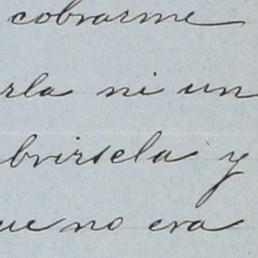 cobrarme
rla ni un
brirsela y
ue no era